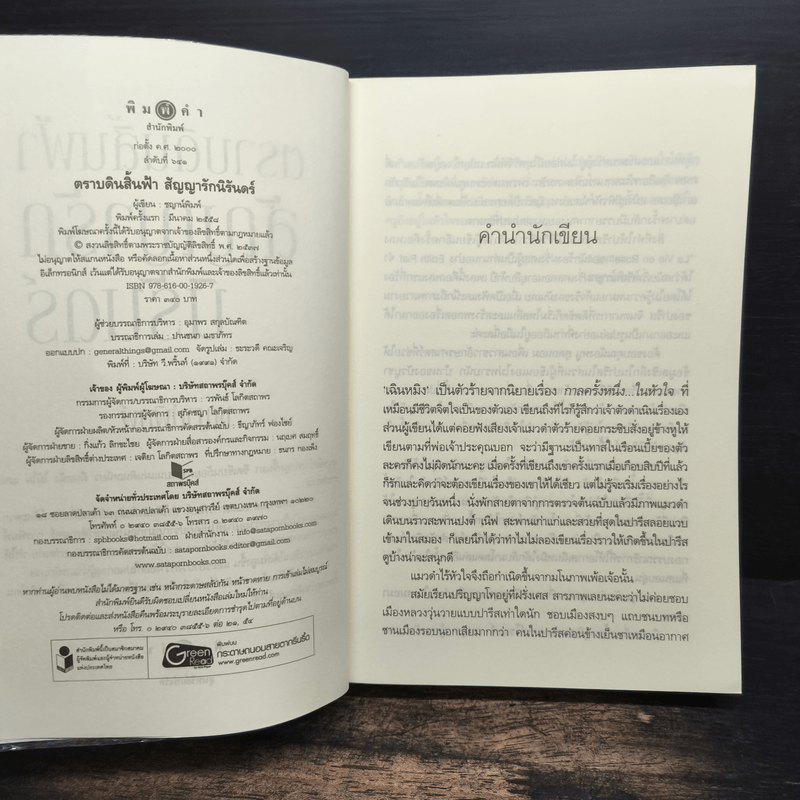 พิมพ์คำ
สำนักพิมพ์
ก่อตั้ง ค.ศ. ๒๐๐๐
ลำดับที่ ๖๔๑
ตราบดินสิ้นฟ้า สัญญารักนิรันดร์
ผู้เขียน : ชญาน์พิมพ์
พิมพ์ครั้งแรก : มีนาคม ๒๕๕๘
พิมพ์โฆษณาครั้งนี้ได้รับอนุญาตจากเจ้าของลิขสิทธิ์ตามกฎหมายแล้ว
© สงวนลิขสิทธิ์ตามพระราชบัญญัติลิขสิทธิ์ พ.ศ. ๒๕๓๗
ไม่อนุญาตให้สแกนหนังสือ หรือคัดลอกเนื้อหาส่วนหนึ่งส่วนใดเพื่อสร้างฐานข้อมูล
อิเล็กทรอนิกส์ เว้นแต่ได้รับอนุญาตจากสำนักพิมพ์และเจ้าของลิขสิทธิ์แล้วเท่านั้น
ISBN 978-616-00-1926-7
ราคา ๓๔๐ บาท
ผู้ช่วยบรรณาธิการบริหาร : อุมาพร สกุลบัณฑิต
บรรณาธิการเล่ม : ปานชนก เมฆาภัทร
ออกแบบปก : generalthings@gmail.com จัดรูปเล่ม : ชะระวดี คณะเจริญ
พิมพ์ที่ : บริษัท วี.พริ้นท์ (๑๙๙๑) จำกัด
เจ้าของ ผู้พิมพ์ผู้โฆษณา : บริษัทสถาพรบุ๊คส์ จำกัด
กรรมการผู้จัดการ/บรรณาธิการบริหาร : วรพันธ์ โลกิตสถาพร
รองกรรมการผู้จัดการ : สุภัชญา โลกิตสถาพร
ผู้จัดการฝ่ายผลิต/หัวหน้ากองบรรณาธิการคัดสรรต้นฉบับ : ธีญาภัทร์ ฟองไชย์
ผู้จัดการฝ่ายขาย : กิ่งแก้ว ลิกขะไชย ผู้จัดการฝ่ายสื่อสารองค์กรและกิจกรรม : นฤเบศ สมฤทธิ์
ผู้จัดการฝ่ายลิขสิทธิ์ต่างประเทศ : เจติยา โลกิตสถาพร ที่ปรึกษาทางกฎหมาย : ธนกร กองเพ็ง
SPB
สถาพรบุ๊คส์
จัดจำหน่ายทั่วประเทศโดย บริษัทสถาพรบุ๊คส์ จำกัด
๑๘ ซอยลาดปลาเค้า ๖๓ ถนนลาดปลาเค้า แขวงอนุสาวรีย์ เขตบางเขน กรุงเทพฯ ๑๐๒๒๐
โทรศัพท์ ๐ ๒๙๔๐ ๓๘๕๕-๖ โทรสาร ๐ ๒๙๔๐ ๓๙๗๐
กองบรรณาธิการ : spbbooks@hotmail.com ฝ่ายสำนักงาน : info@satapornbooks.com
กองบรรณาธิการคัดสรรต้นฉบับ : satapornbooks.editor@gmail.com
www.satapornbooks.com
หากท่านผู้อ่านพบหนังสือไม่ได้มาตรฐาน เช่น หน้ากระดาษสลับกัน หน้าขาดหาย การเข้าเล่มไม่สมบูรณ์
สำนักพิมพ์ยินดีรับผิดชอบเปลี่ยนหนังสือเล่มใหม่ให้ท่าน
โปรดติดต่อและส่งหนังสือคืนพร้อมระบุรายละเอียดการชำรุดไปตามที่อยู่ด้านบน
หรือ โทร. ๐ ๒๙๔๐ ๓๘๕๕-๖ ต่อ ๒๑, ๕๔
สำนักพิมพ์นี้เป็นสมาชิกสมาคม
ผู้จัดพิมพ์และผู้จำหน่ายหนังสือ
แห่งประเทศไทย
Green Read
พิมพ์บน
กระดาษถนอมสายตากรีนรี้ด
www.greenread.com
คำนำนักเขียน
'เฉินหมิง' เป็นตัวร้ายจากนิยายเรื่อง กาลครั้งหนึ่ง...ในหัวใจ ที่
เหมือนมีชีวิตจิตใจเป็นของตัวเอง เขียนถึงที่ไรก็รู้สึกว่าเจ้าตัวดำเนินเรื่องเอง
ส่วนผู้เขียนได้แต่คอยฟังเสียงเจ้าแมวดำตัวร้ายคอยกระซิบสั่งอยู่ข้างหูให้
เขียนตามที่พ่อเจ้าประคุณบอก จะว่ามีฐานะเป็นทาสในเรือนเบี้ยของตัว
ละครก็คงไม่ผิดนักนะคะ เมื่อครั้งที่เขียนถึงเขาครั้งแรกเมื่อเกือบสิบปีที่แล้ว
ก็รักและคิดว่าจะต้องเขียนเรื่องของเขาให้ได้เชียว แต่ไม่รู้จะเริ่มเรื่องอย่างไร
จนช่วงบ่ายวันหนึ่ง นั่งพักสายตาจากการตรวจต้นฉบับแล้วมีภาพแมวดำ
เดินบนราวสะพานปงต์ เนิฟ สะพานเก่าแก่และสวยที่สุดในปารีสลอยแวบ
เข้ามาในสมอง ก็เลยนึกได้ว่าทำไมไม่ลองเขียนเรื่องราวให้เกิดขึ้นในปารีส
ดูบ้างน่าจะสนุกดี
แมวดำไร้หัวใจจึงถือกำเนิดขึ้นจากมโนภาพเพ้อเจ้อนั้น
สมัยเรียนปริญญาโทอยู่ที่ฝรั่งเศส สารภาพเลยนะคะว่าไม่ค่อยชอบ
เมืองหลวงวุ่นวายแบบปารีสเท่าใดนัก ชอบเมืองสงบๆ แถบชนบทหรือ
ชานเมืองรอบนอกเสียมากกว่า คนในปารีสค่อนข้างเย็นชาเหมือนอากาศ